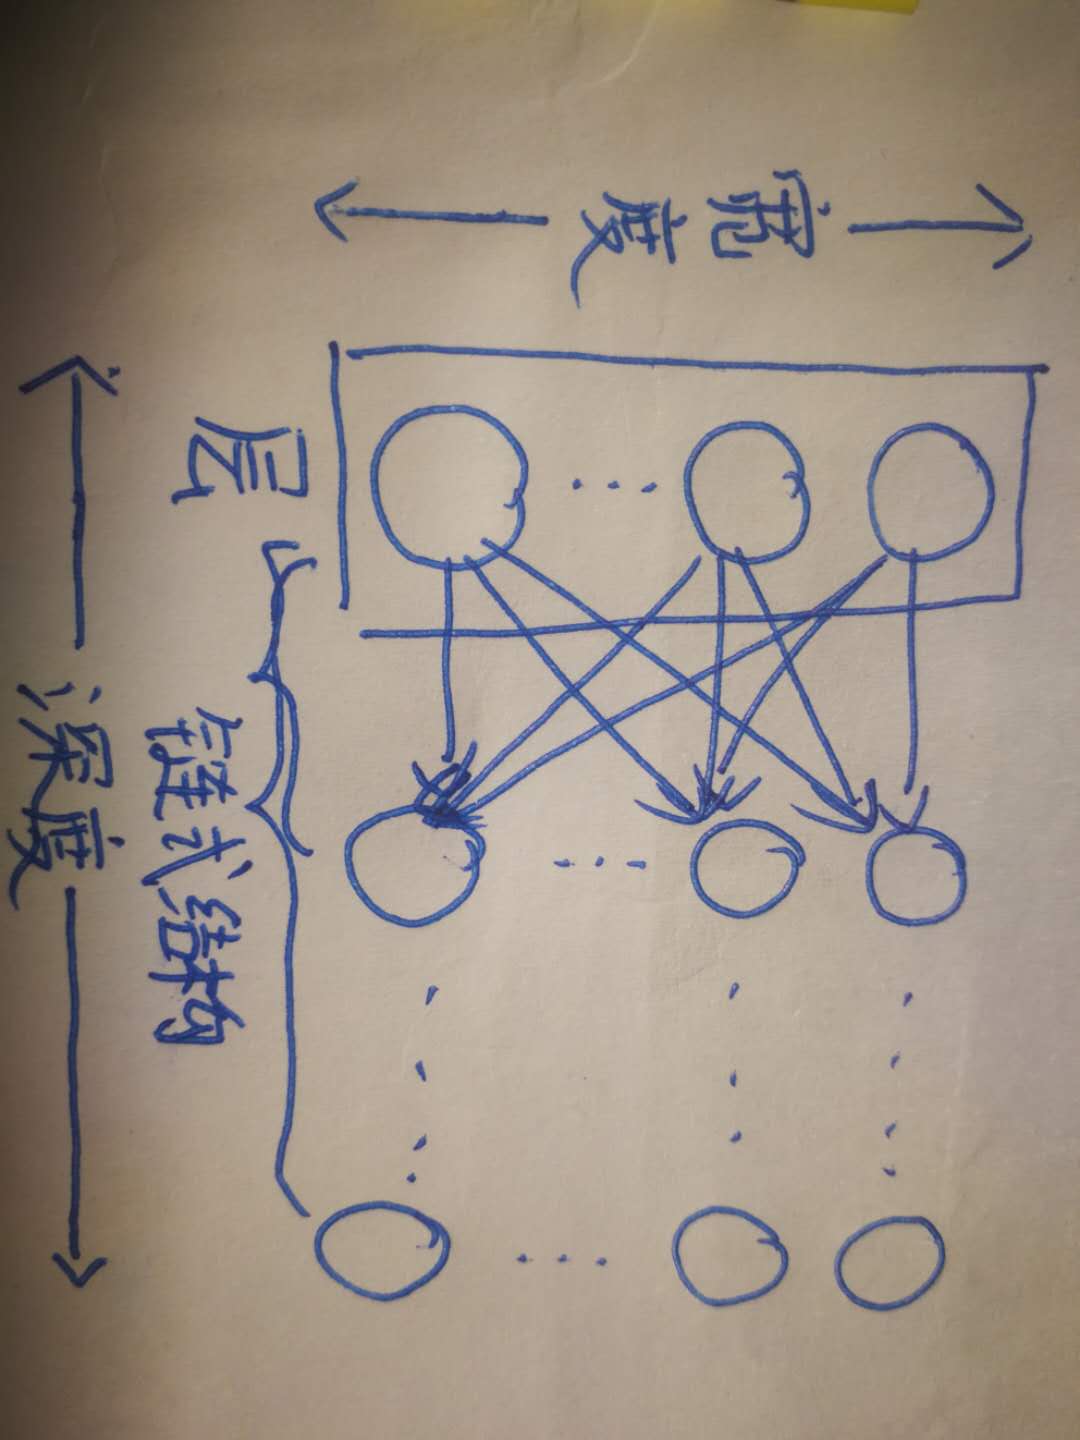 宽度
层
链式结构
深度